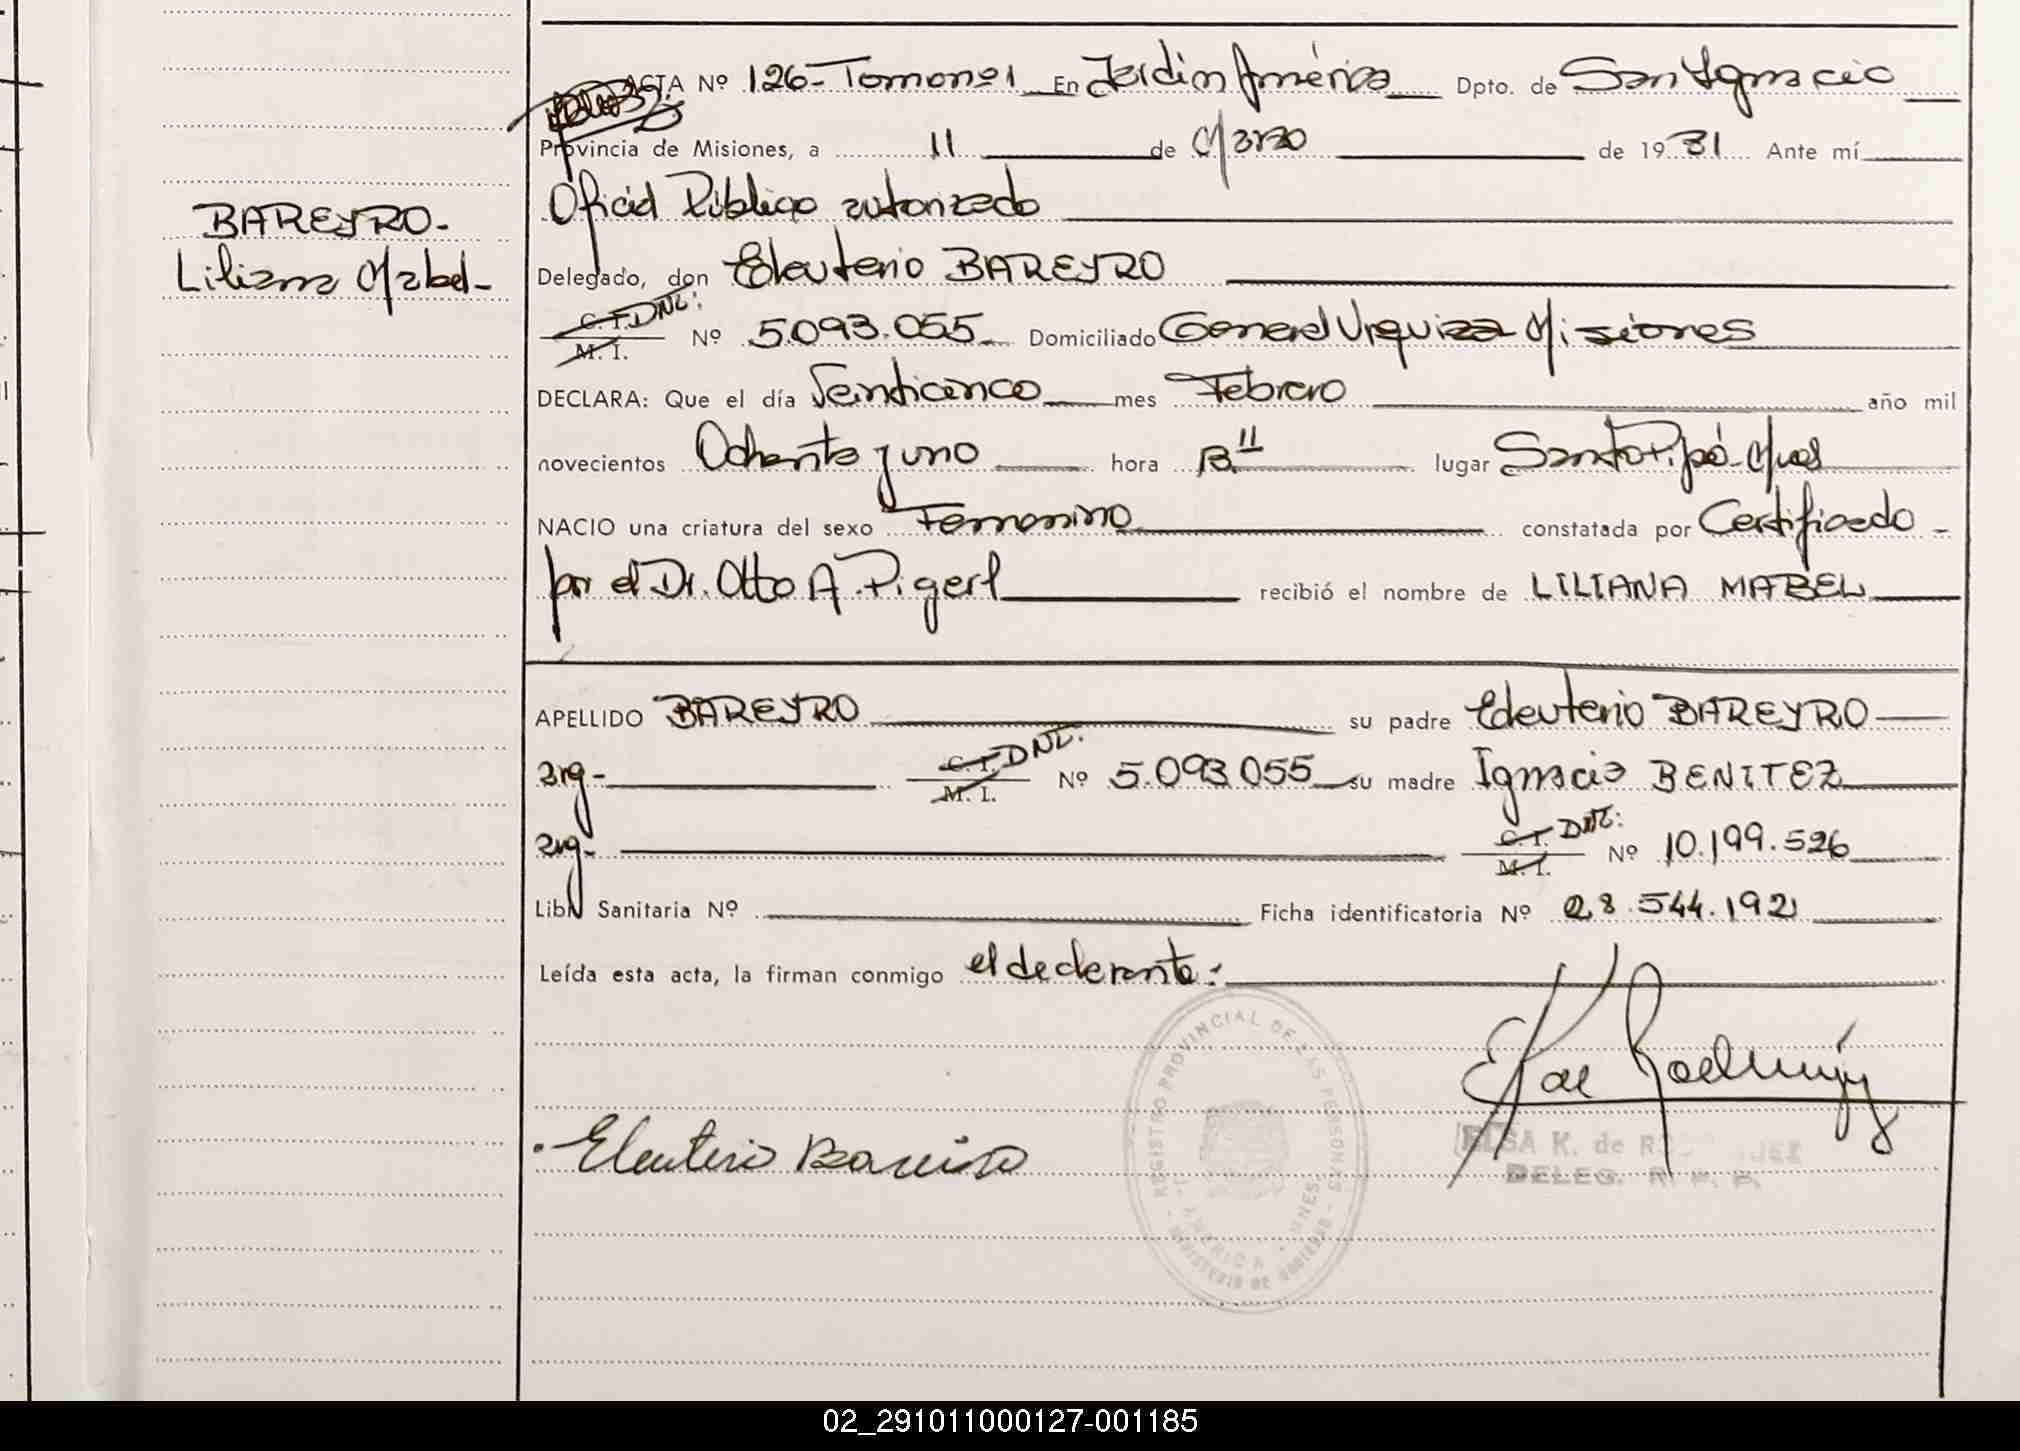 ACTA Nº 126- Tomo nº 1 En Jardín América Dpto. de San Ignacio
Provincia de Misiones, a 11 de Marzo de 1981 Ante mí
Oficial Público autorizado
BAREYRO-
Liliana Mabel-
Delegado, don Eleuterio BAREYRO
C. I. DNI: M. I. Nº 5.093.055 Domiciliado General Urquiza Misiones
DECLARA: Que el día Veinticinco mes Febrero año mil
novecientos Ochenta y uno hora lugar Santo Pipó- Mnes
NACIO una criatura del sexo Femenino constatada por Certificado -
por el Dr. Otto A. Pigerl recibió el nombre de LILIANA MABEL
APELLIDO BAREYRO su padre Eleuterio BAREYRO
arg- C. I. DNI: M. I. Nº 5.093.055 su madre Ignacia BENITEZ
arg- C. I. DNI: M. I. Nº 10.199.526
Libr Sanitaria Nº Ficha identificatoria Nº 28.544.192
Leída esta acta, la firman conmigo el declarante:
REGISTRO PROVINCIAL DE LAS PERSONAS
MINISTERIO DE GOBIERNO
Eleuterio Bareiro
ELSA K. de
DELEG. R. P. P.
02_291011000127-001185